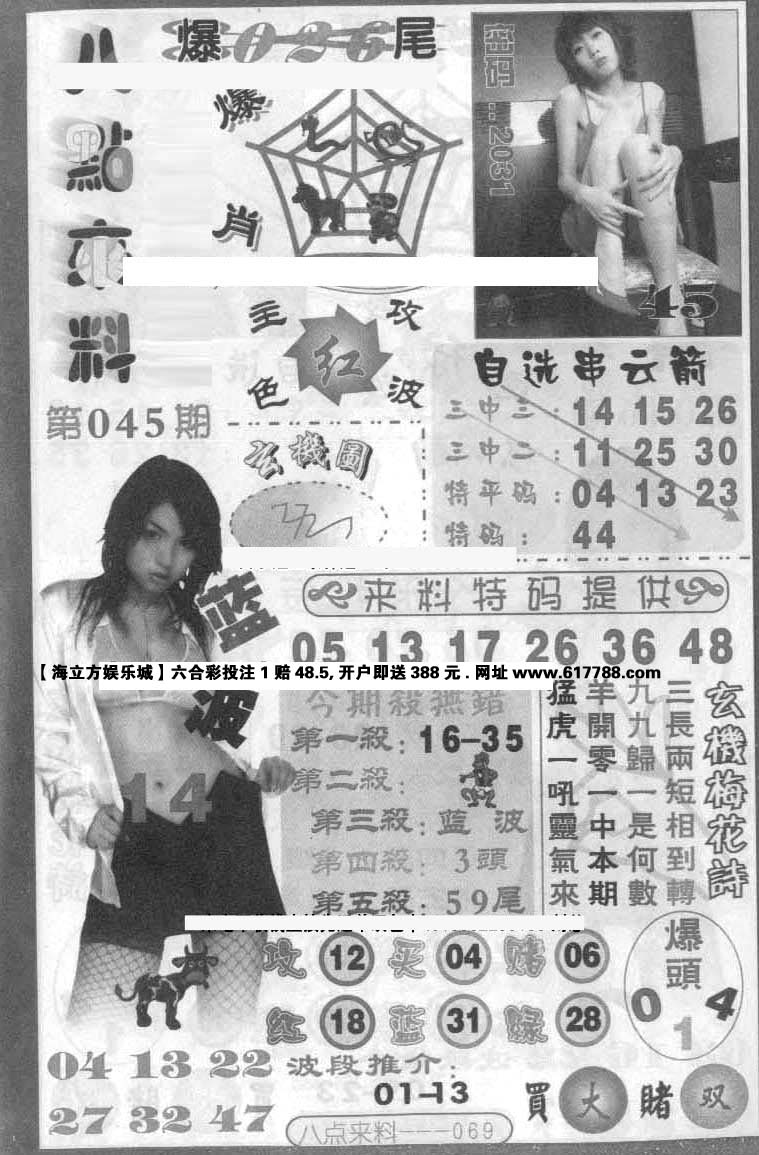 八點來料
爆026尾
爆肖
45
主攻
红
色波
第045期
自选串云箭
三中三：14 15 26
三中二：11 25 30
特平码：04 13 23
特码：44
玄機圖
蓝波
14
来料特码提供
05 13 17 26 36 48
【海立方娱乐城】六合彩投注1赔48.5,开户即送388元.网址www.617788.com
今期殺無錯
第一殺：16-35
第二殺：
第三殺：蓝波
第四殺：3頭
第五殺：59尾
玄機梅花詩
三長兩短相到轉
九九歸一是何數
羊開零一中本期
猛虎一吼靈氣來
攻 12 买 04 赌 06
红 18 蓝 31 绿 28
爆頭
0 1 4
04 13 22
27 32 47
波段推介：
01-13
買大賭双
八点来料---069